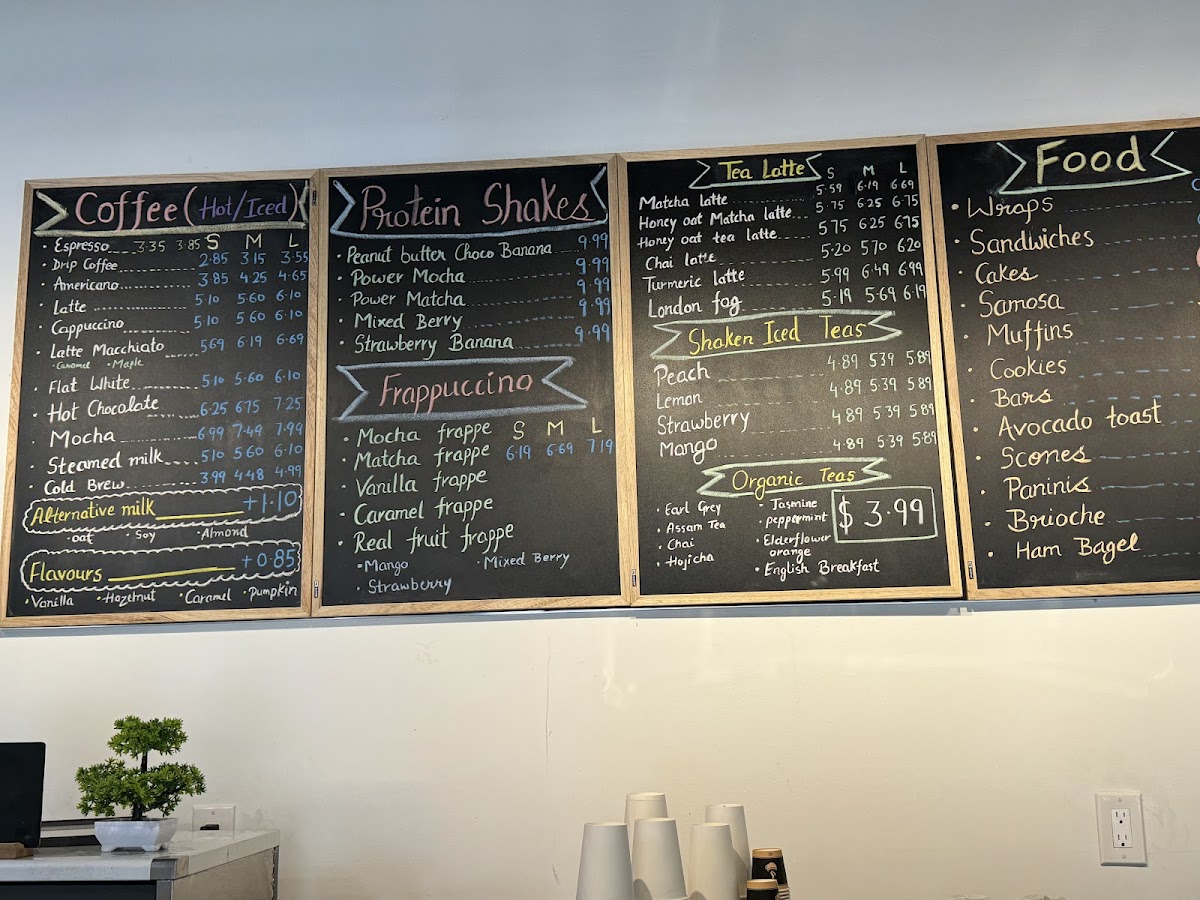 Coffee (Hot/Iced)
• Espresso 3.35 3.85 S M L
• Drip Coffee 2.85 3.15 3.55
• Americano 3.85 4.25 4.65
• Latte 5.10 5.60 6.10
• Cappuccino 5.10 5.60 6.10
• Latte Macchiato 5.69 6.19 6.69
• Caramel • Maple
• Flat White 5.10 5.60 6.10
• Hot Chocolate 6.25 6.75 7.25
• Mocha 6.99 7.49 7.99
• Steamed milk 5.10 5.60 6.10
• Cold Brew 3.99 4.48 4.99
Alternative milk +1.10
• oat • Soy • Almond
Flavours +0.85
• Vanilla • Hazelnut • Caramel • Pumpkin
Protein Shakes
• Peanut butter Choco Banana 9.99
• Power Mocha 9.99
• Power Matcha 9.99
• Mixed Berry 9.99
• Strawberry Banana 9.99
Frappuccino
• Mocha frappe S M L
• Matcha frappe 6.19 6.69 7.19
• Vanilla frappe
• Caramel frappe
• Real fruit frappe
• Mango • Mixed Berry
• Strawberry
Tea Latte S M L
Matcha latte 5.59 6.19 6.69
Honey oat Matcha latte 5.75 6.25 6.75
Honey oat tea latte 5.75 6.25 6.75
Chai latte 5.20 5.70 6.20
Turmeric latte 5.99 6.49 6.99
London fog 5.19 5.69 6.19
Shaken Iced Teas
Peach 4.89 5.39 5.89
Lemon 4.89 5.39 5.89
Strawberry 4.89 5.39 5.89
Mango 4.89 5.39 5.89
Organic Teas
$3.99
• Earl Grey
• Assam Tea
• Chai
• Hojicha
• Jasmine
• peppermint
• Elderflower
orange
• English Breakfast
Food
• Wraps
• Sandwiches
• Cakes
• Samosa
• Muffins
• Cookies
• Bars
• Avocado toast
• Scones
• Paninis
• Brioche
• Ham Bagel